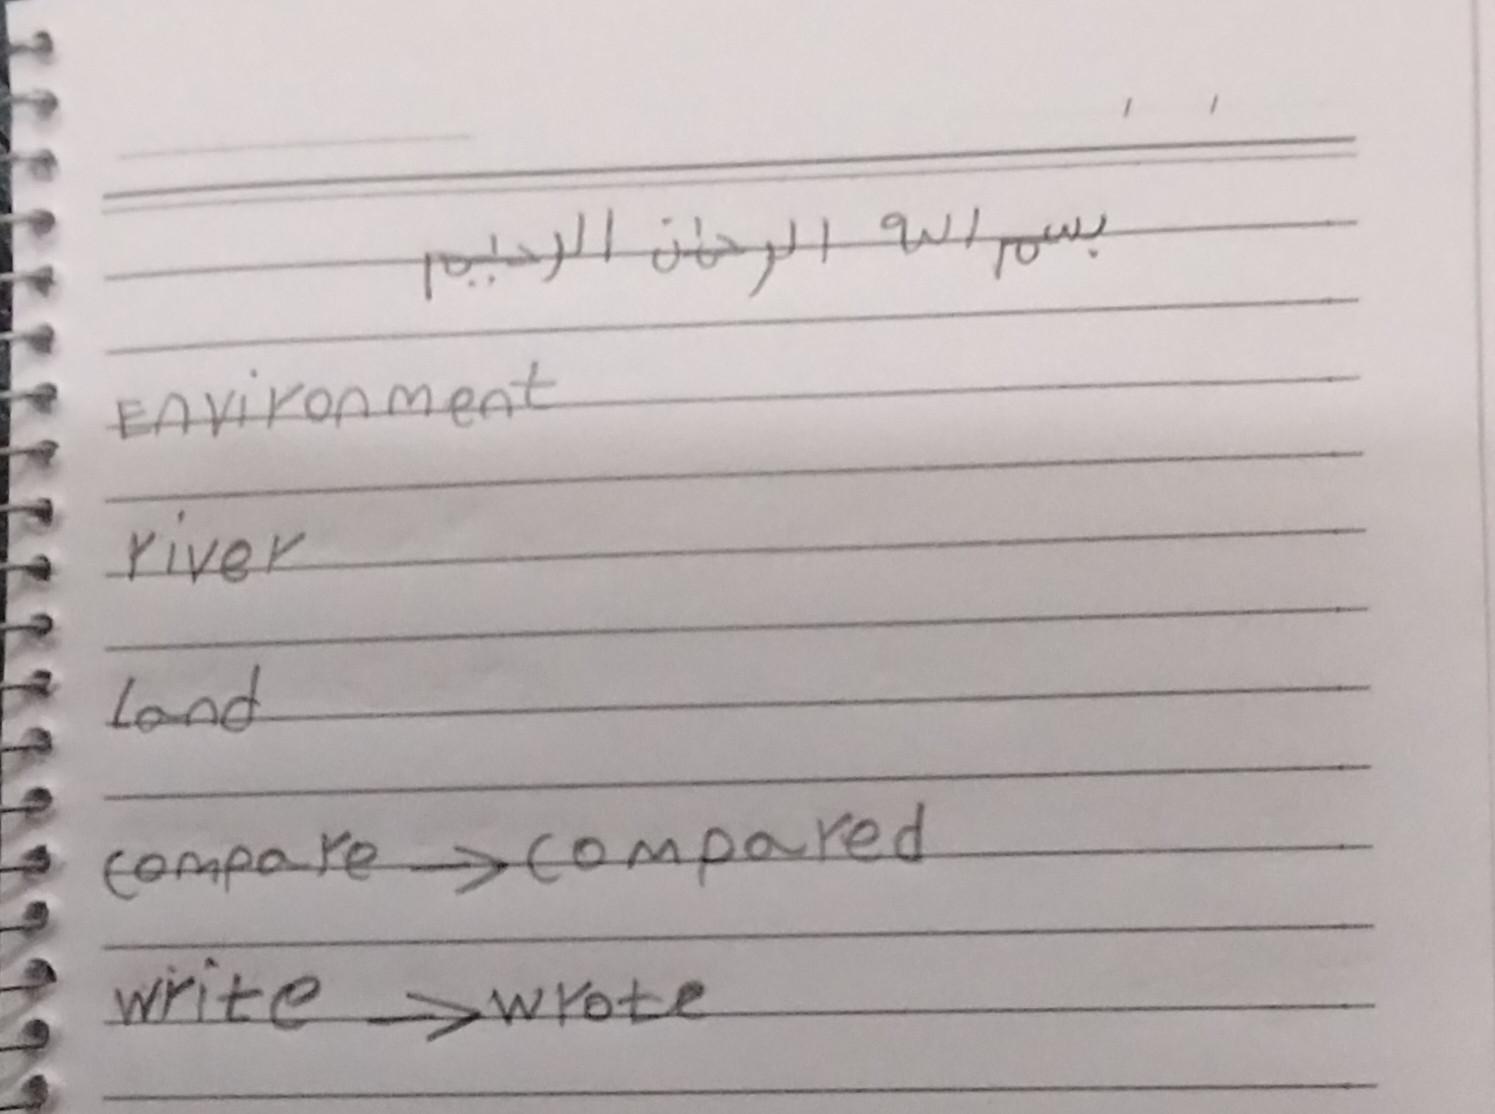 بسم الله الرحمان الرحيم
Environment
river
Land
compare → compared
write → wrote